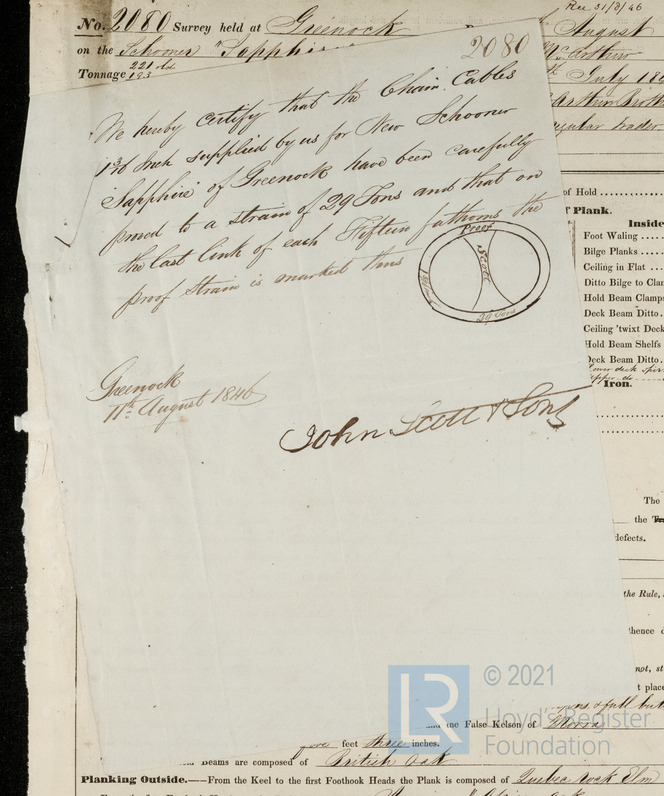 Rec 31/8/46
No. 2080 Survey held at Greenock
August
on the Schooner "Sapphire
McArthur
Tonnage 221 old
193
July 184
McArthur Broth
regular trader
2080
We hereby certify that the Chain Cables
Inch supplied by us for New Schooner
Sapphire of Greenock have been carefully
proved to a strain of 29 Tons and that on
the last link of each Fifteen fathoms the
proof strain is marked thus
Proof
Scott
29 Tons
Greenock
11th August 1846
John Scott & Sons
of Hold
Plank.
Inside
Foot Waling
Bilge Planks
Ceiling in Flat
Ditto Bilge to Clam
Hold Beam Clamps
Deck Beam Ditto
Ceiling 'twixt Deck
Hold Beam Shelfs
Deck Beam Ditto
Iron.
The
the
defects.
the Rule,
thence
not, st
t place
& full but
the False Kelson of
feet three inches.
Beams are composed of British Oak
Planking Outside.—From the Keel to the first Foothook Heads the Plank is composed of Quebec Rock Elm
LR
© 2021
Lloyd's Register
Foundation